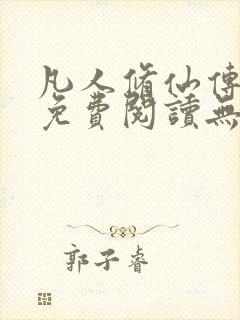 凡人脩仙傳
免費閱讀無
郭子睿